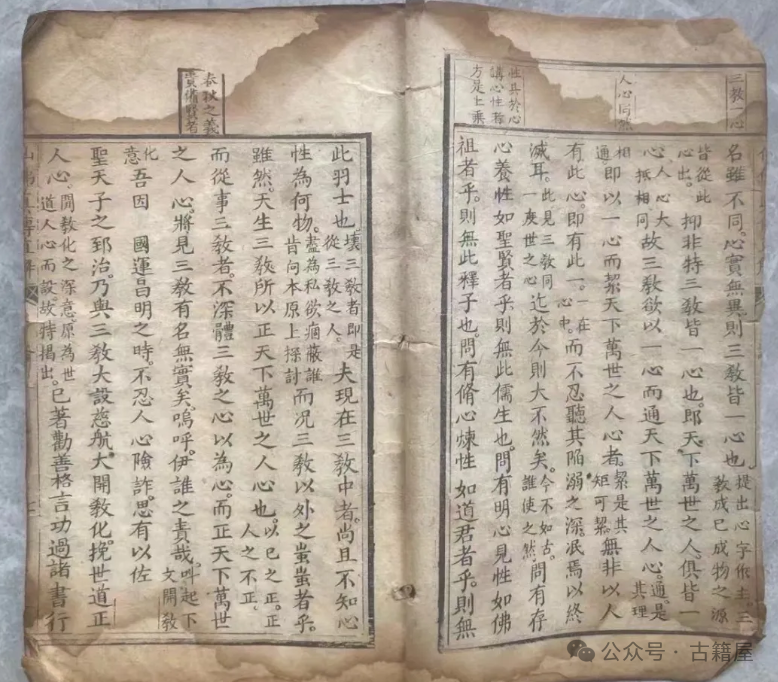 三教一心
人心同然
性具於心
講心性稱
方是上乘
名雖不同。心實無異。則三教皆一心也。提出心字作主。三教成已成物之源
皆從此心出。抑非特三教皆一心也。即天下萬世之人。俱皆一
心。人心大抵相同故三教欲以一心而通天下萬世之人心。通是其理
相通即以一心而絜天下萬世之人心者。絜是其矩可絜。無非以人
有此心即有此一。一在心中。而不忍聽其陷溺之深。泯焉以終
滅耳。此見三教同一度世之心迄於今則大不然矣。今不如古。誰使之然問有存
心養性如聖賢者乎。則無此儒生也。問有明心見性如佛
祖者乎。則無此釋子也。問有脩心煉性如道君者乎。則無
春秋之義
責備賢者
此羽士也。壞三教者即是從三教之人。夫現在三教中者。尚且不知心
性為何物。盡為私欲痼蔽誰肯向本原上探討而况三教以外之蚩蚩者乎。
雖然。天生三教所以正天下萬世之人心也。以已之正。正人之不正。
而從事三教者。不深體三教之心以為心。而正天下萬世
之人心。將見三教有名無實矣。嗚呼。伊誰之責哉。呌起下文開教
化意吾因 國運昌明之時。不忍人心險詐。思有以佐
聖天子之郅治。乃與三教大設慈航。大開教化。挽世道正
人心。開教化之深意。原為世道人心而設故特揭出。已著勸善格言功過諸書行
公众号·古籍屋